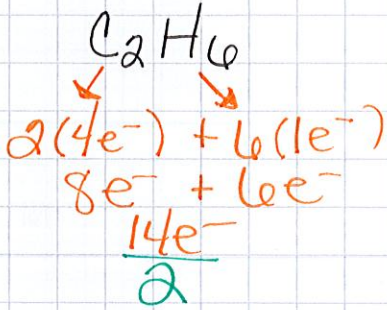 C₂H₆
2(4e⁻) + 6(1e⁻)
8e⁻ + 6e⁻
14e⁻
2